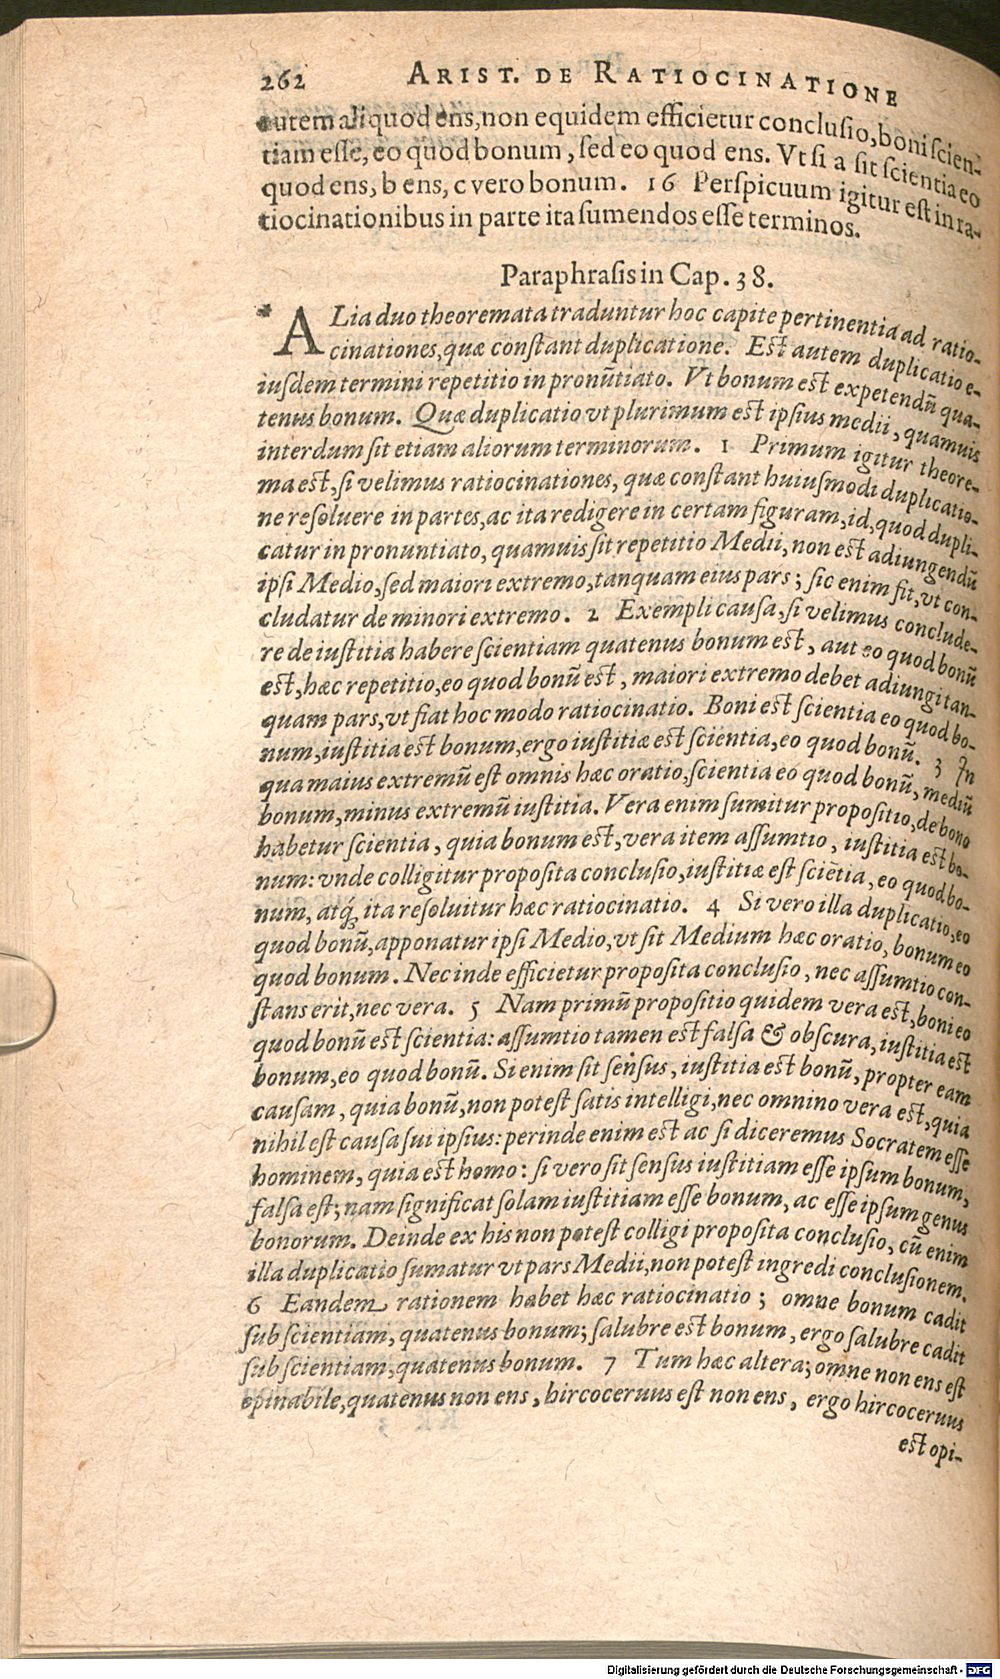 262 ARIST. DE RATIOCINATIONE
autem aliquod ens, non equidem efficietur conclusio, boni scien-
tiam esse, eo quod bonum, sed eo quod ens. Vt si a sit scientia eo
quod ens, b ens, c vero bonum. 16 Perspicuum igitur est in ra-
tiocinationibus in parte ita sumendos esse terminos.
Paraphrasis in Cap. 38.
* ALia duo theoremata traduntur hoc capite pertinentia ad ratio-
cinationes, quæ constant duplicatione. Est autem duplicatio e-
iusdem termini repetitio in pronũtiato. Vt bonum est expetendũ qua-
tenus bonum. Quæ duplicatio vt plurimum est ipsius medii, quamuis
interdum sit etiam aliorum terminorum. 1 Primum igitur theore-
ma est, si velimus ratiocinationes, quæ constant huiusmodi duplicatio-
ne resoluere in partes, ac ita redigere in certam figuram, id, quod dupli-
catur in pronuntiato, quamuis sit repetitio Medii, non est adiungendũ
ipsi Medio, sed maiori extremo, tanquam eius pars; sic enim fit, vt con-
cludatur de minori extremo. 2 Exempli causa, si velimus conclude-
re de iustitia habere scientiam quatenus bonum est, aut eo quod bonũ
est, hæc repetitio, eo quod bonũ est, maiori extremo debet adiungi tan-
quam pars, vt fiat hoc modo ratiocinatio. Boni est scientia eo quod bo-
num, iustitia est bonum, ergo iustitiæ est scientia, eo quod bonũ. 3 In
qua maius extremũ est omnis hæc oratio, scientia eo quod bonũ, mediũ
bonum, minus extremũ iustitia. Vera enim sumitur propositio, de bono
habetur scientia, quia bonum est, vera item assumtio, iustitia est bo-
num: vnde colligitur proposita conclusio, iustitiæ est sciẽtia, eo quod bo-
num, atq́; ita resoluitur hæc ratiocinatio. 4 Si vero illa duplicatio, eo
quod bonũ, apponatur ipsi Medio, vt sit Medium hæc oratio, bonum eo
quod bonum. Nec inde efficietur proposita conclusio, nec assumtio con-
stans erit, nec vera. 5 Nam primũ propositio quidem vera est, boni eo
quod bonũ est scientia: assumtio tamen est falsa & obscura, iustitia est
bonum, eo quod bonũ. Si enim sit sensus, iustitia est bonũ, propter eam
causam, quia bonũ, non potest satis intelligi, nec omnino vera est, quia
nihil est causa sui ipsius: perinde enim est ac si diceremus Socratem esse
hominem, quia est homo: si vero sit sensus iustitiam esse ipsum bonum,
falsa est; nam significat solam iustitiam esse bonum, ac esse ipsum genus
bonorum. Deinde ex his non potest colligi proposita conclusio, cũ enim
illa duplicatio sumatur vt pars Medii, non potest ingredi conclusionem.
6 Eandem rationem habet hæc ratiocinatio; omne bonum cadit
sub scientiam, quatenus bonum; salubre est bonum, ergo salubre cadit
sub scientiam, quatenus bonum. 7 Tum hæc altera; omne non ens est
opinabile, quatenus non ens, hircoceruus est non ens, ergo hircoceruus
est opi-
Digitalisierung gefördert durch die Deutsche Forschungsgemeinschaft - DFG